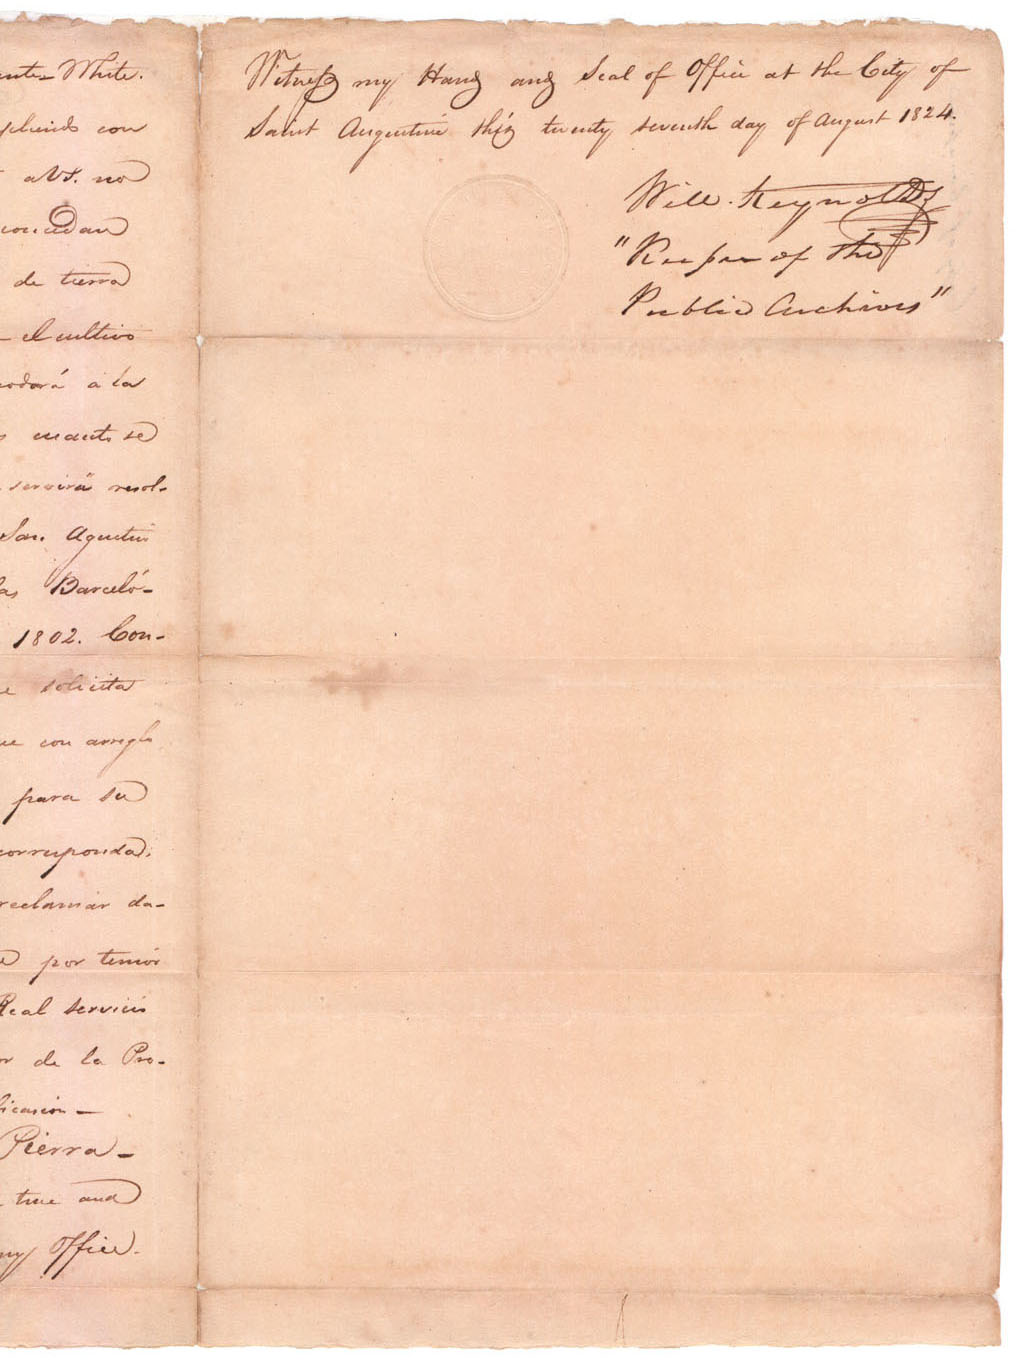 ente White.
con
a V.S. no
concedan
de tierra
el cultivo
modará á la
cuanto se
servirá resol-
San Agustin
las Barceló-
1802. Con-
e solicita
ue con arreglo
para su
corresponda,
reclamar da-
por temór
Real servicio
or de la Pro-
ficasión -
Pierra -
true and
my Office.
Witness my Hand and Seal of Office at the City of
Saint Augustine this twenty seventh day of August 1824.
Will. Reynolds
"Keeper of the
Public Archives"